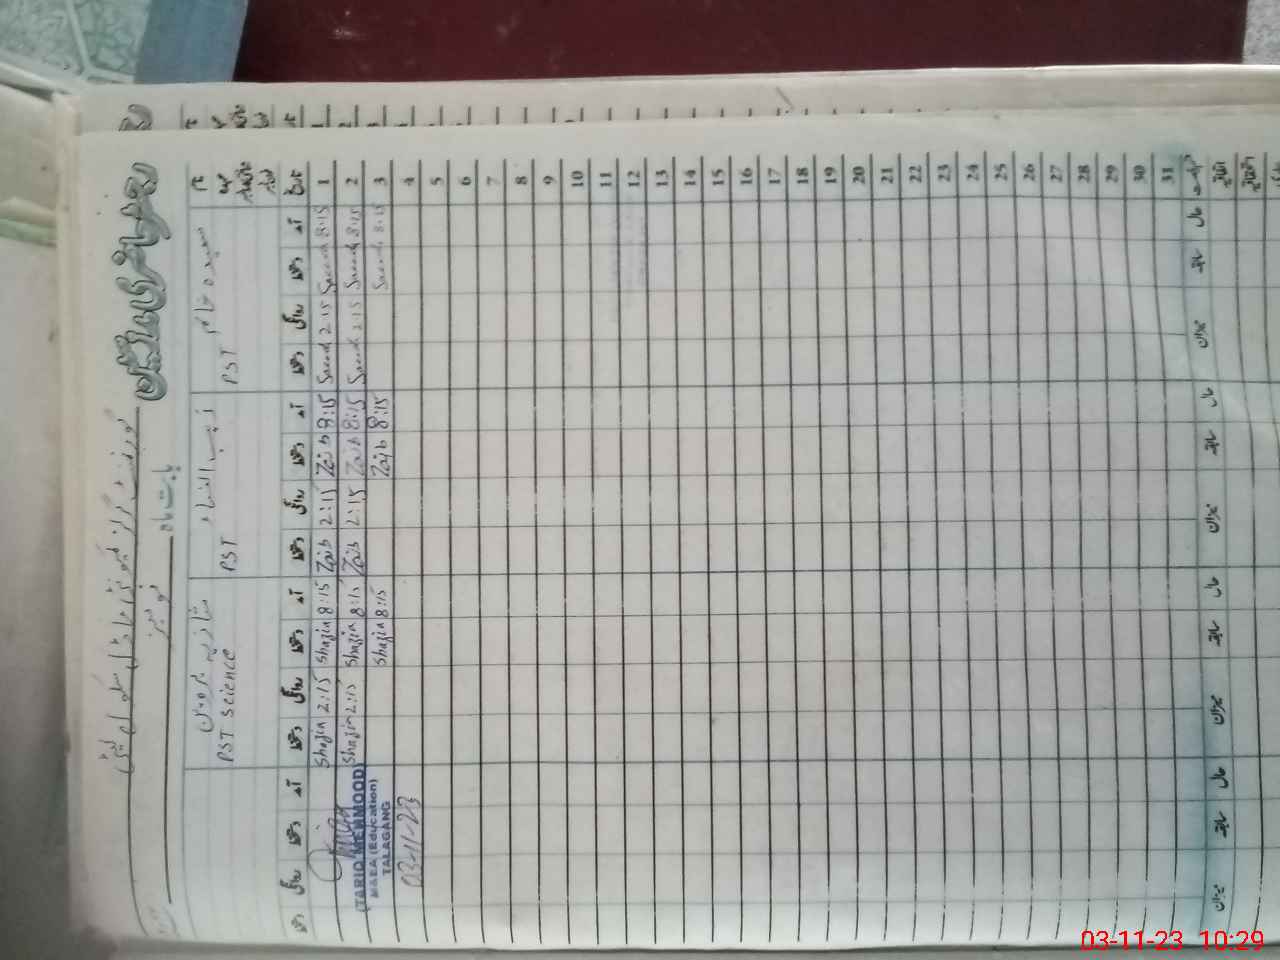 رجسٹر حاضری مدرسین
گورنمنٹ گرلز کمیونٹی ماڈل سکول
بابت ماہ نومبر
نام سعیدہ خانم زیب النساء شازیہ پروین
عہدہ PST PST PST Science
تاریخ آمد دستخط روانگی دستخط آمد دستخط روانگی دستخط آمد دستخط روانگی دستخط آمد دستخط روانگی دستخط
1 8:15 Saeed 2:15 Saeed 8:15 Zaib 2:15 Zaib 8:15 Shazia 2:15 Shazia
2 8:15 Saeed 2:15 Saeed 8:15 Zaib 2:15 Zaib 8:15 Shazia 2:15 Shazia
3 8:15 Saeed 8:15 Zaib 8:15 Shazia
(TARIQ MEHMOOD)
M&EA (Education)
TALAGANG
03-11-23
4
5
6
7
8
9
10
11
12
13
14
15
16
17
18
19
20
21
22
23
24
25
26
27
28
29
30
31
حال سابقہ میزان حال سابقہ میزان حال سابقہ میزان حال سابقہ میزان
03-11-23 10:29